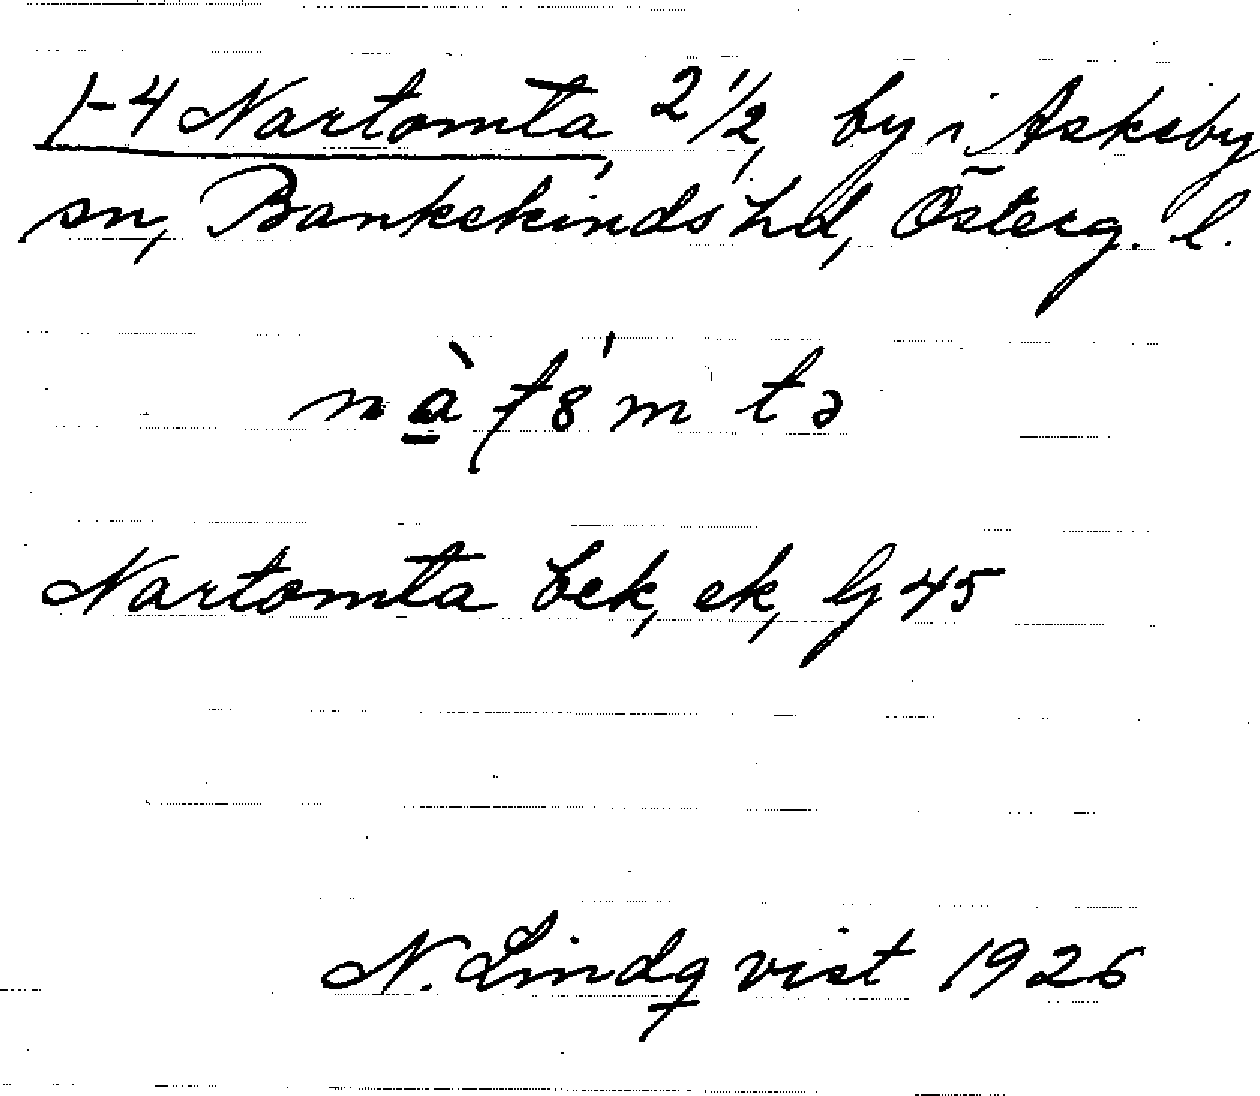 1-4 Nartomta, 2 1/2, by i Askeby
sn, Bankekinds hd, Österg. l.
Nartomta bek, ek, lj 45
N. Lindqvist 1926